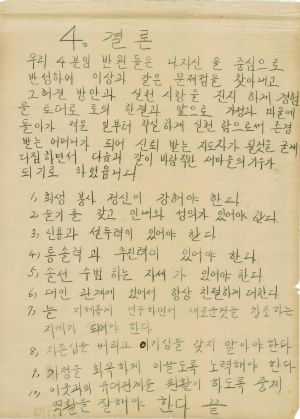 4. 결론
우리 4분임 반원들은 나자신을 중심으로
반성하여 이상과 같은 문제점을 찾아내고
그 해결 방안과 실천 사항을 진지하게 경험
을 토대로 토의 한결과 앞으로 가정과 마을에
돌아가 적은 일부터 착실하게 실천 함으로써 존경
받는 어머니가 되어 신뢰 받는 지도자가 될것을 굳게
다짐하면서 다음과 같이 바람직한 새마을의 기수가
되기로 하였읍니다
1, 희생 봉사 정신이 강하여야 한다.
2, 순기를 갖고 인내와 성의가 있어야 한다.
3, 신용과 설득력이 있어야 한다.
4, 통솔력과 추진력이 있어야 한다.
5, 솔선 수범 하는 자세가 있어야 한다
6, 대인 관계에 있어서 항상 친절하게 대한다
7, 늘 연구하면서 새로운것을 창조하는
지혜가 되어야 한다.
8, 자존심을 버리고 이기심을 갖지 말아야 한다
9, 가정을 화목하게 이끌도록 노력해야 한다
10, 이웃과의 유대관계를 원활히 하도록 중재
역활을 잘해야 한다 끝